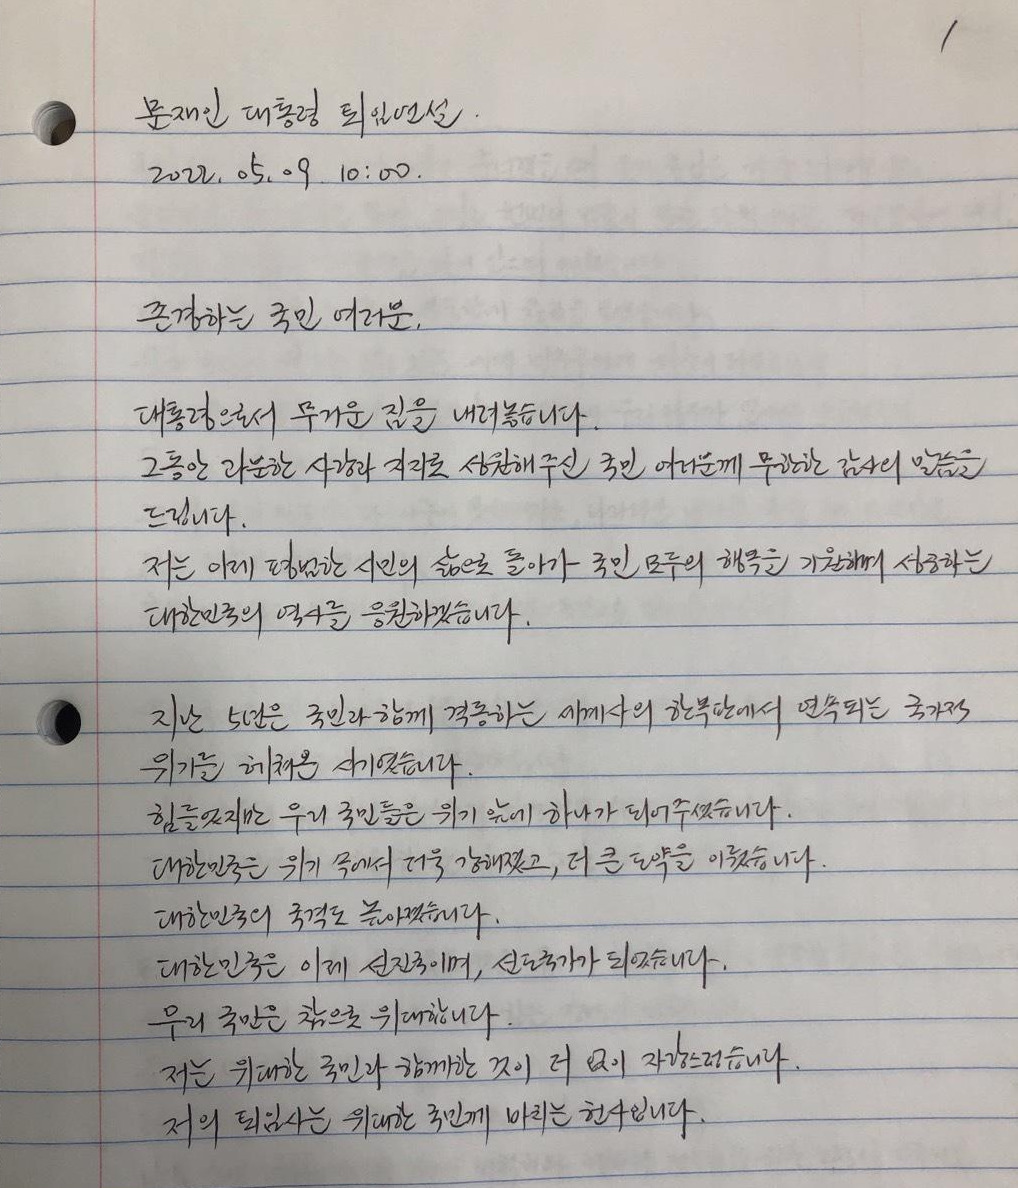 1
문재인 대통령 퇴임연설.
2022. 05. 09. 10:00.
존경하는 국민 여러분,
대통령으로서 무거운 짐을 내려놓습니다.
그동안 과분한 사랑과 지지로 성원해주신 국민 여러분께 무한한 감사의 말씀을
드립니다.
저는 이제 평범한 시민의 삶으로 돌아가 국민 모두의 행복을 기원하며 성공하는
대한민국의 역사를 응원하겠습니다.
지난 5년은 국민과 함께 격동하는 세계사의 한복판에서 연속되는 국가적
위기를 헤쳐온 시기였습니다.
힘들었지만 우리 국민들은 위기 앞에 하나가 되어주셨습니다.
대한민국은 위기 속에서 더욱 강해졌고, 더 큰 도약을 이뤘습니다.
대한민국의 국격도 높아졌습니다.
대한민국은 이제 선진국이며, 선도국가가 되었습니다.
우리 국민은 참으로 위대합니다.
저는 위대한 국민과 함께한 것이 더 없이 자랑스럽습니다.
저의 퇴임사는 위대한 국민께 바치는 헌사입니다.